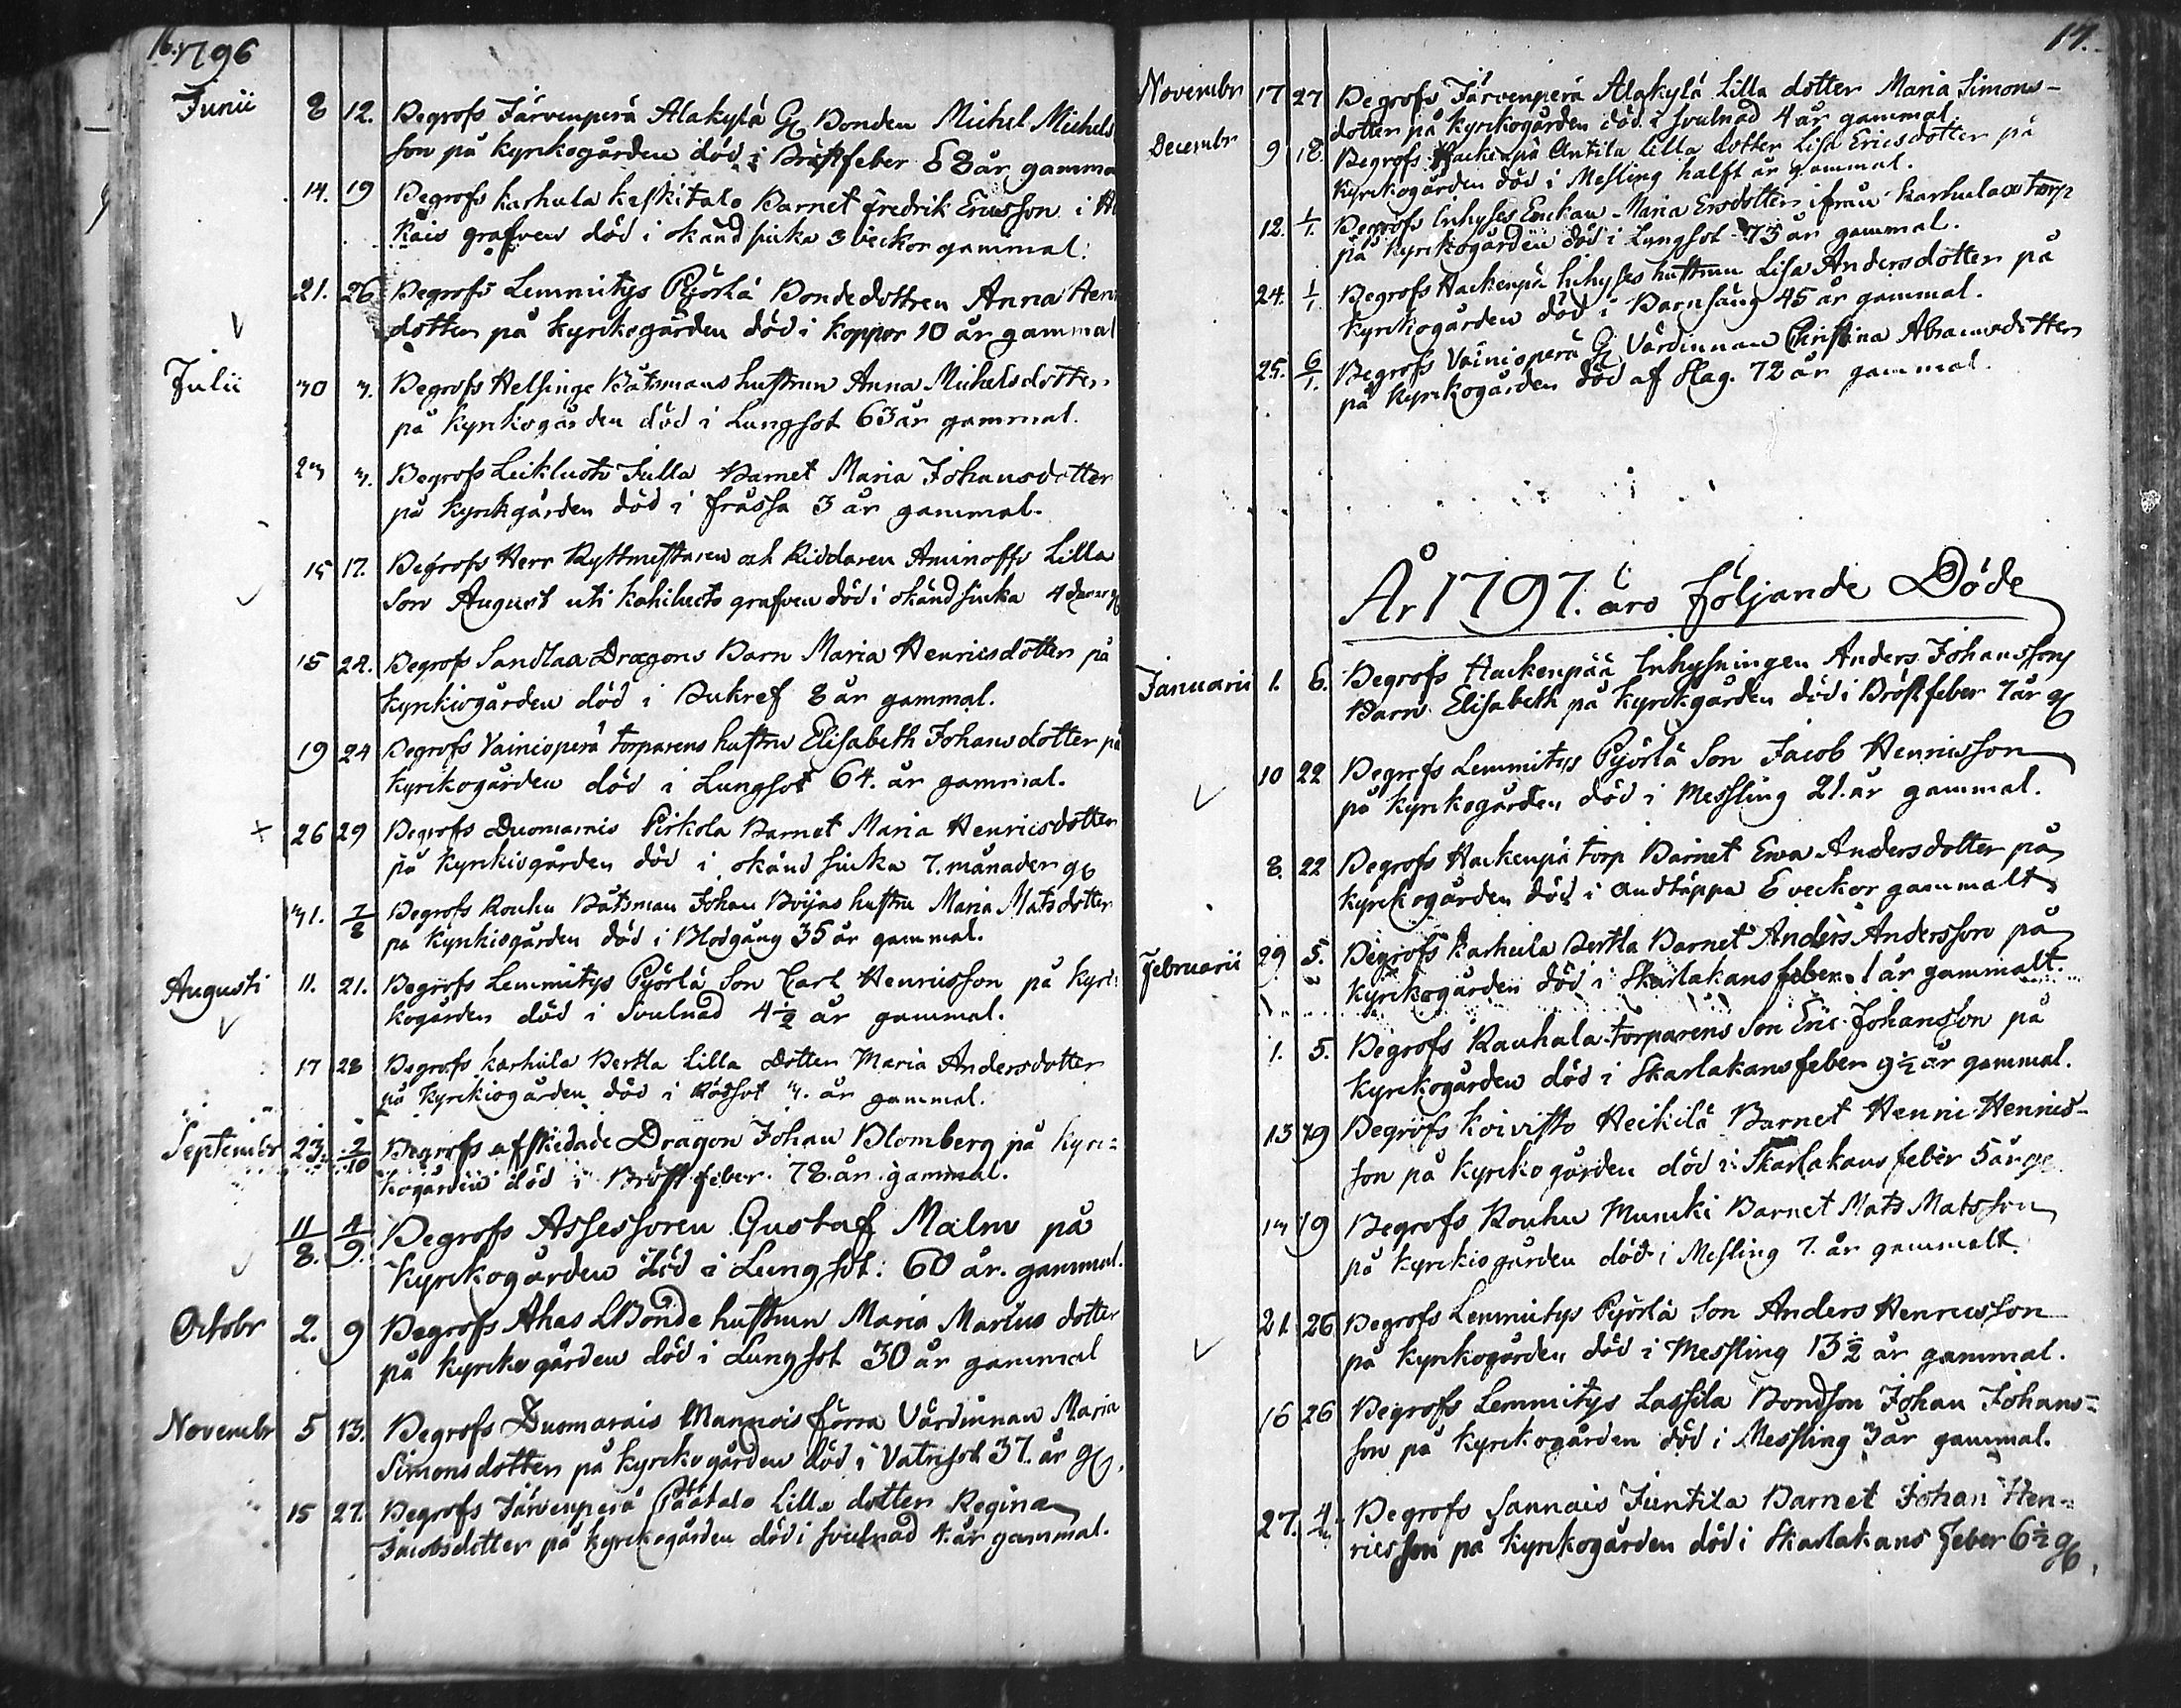 16. 1796
Junii 8 12. Begrofs Järvenperä Alakylä Gl Bonden Michel Michels
son på Kyrkogården död i Bröstfeber 58 år gamma
14. 19 Begrofs karhula keskitalo Barnet Fredrik Ericsson i
kais grafven död i okänd siuka 3 veckor gammal.
21. 26 Begrofs Lemmitys Pyörlä Bondedottren Anna Hen
dotter på kyrkogården död i koppor 10 år gammal
Julii 30 3. Begrofs Helsinge Båtsmans hustrun Anna Michelsdotter
på Kyrkogården död i Lungsot 63 år gammal.
23 3. Begrofs Leikluoto Julla Barnet Maria Johansdotter
på Kyrckgården död i frässa 3 år gammal.
15 17. Begrofs Herr Ryttmestaren och Riddaren Aminoffs Lilla
Son August uti kahiluoto grafven död i okänd siuka 4
15 24. Begrofs Sandlaa Dragons Barn Maria Henricsdotter på
kyrkiogården död i Bukref 8 år gammal.
19 24 Begrofs Vainioperä torparens hustru Elisabeth Johansdotter på
kyrckogården död i Lungsot 64. år gammal.
26 29 Begrofs Duomarnis Pirkola Barnet Maria Henricsdotter
på kyrkiogården död i okänd siuka 7. månader gl
31. 7/8 Begrofs Rouhu Båtsman Johan Böijas hustru Maria Matsdotter
på kyrkiogården död i Blodgång 35 år gammal.
Augusti 11. 21. Begrofs Lemmitys Pyörlä Son Carl Henricsson på kyrc
kogården död i Svulnad 4½ år gammal.
17 28 Begrofs karhula Pertla Lilla Dotter Maria Andersdotter
på Kyrckiogården död i Rödsot 3. år gammal.
Septembr 23. 2/10 Begrofs afskedade Dragon Johan Blomberg på kyrc=
kogården död i Bröstfeber 78. år gammal.
11/8. 4/9. Begrofs Assessoren Gustaf Malm på
Kyrckogården död i Lungsot. 60 år. gammal.
Octobr 2. 9 Begrofs Ahas LBonde hustrun Maria Martins dotter
på kyrckogården död i Lungsot 30 år gammal
Novembr 5 13. Begrofs Duomarais Mannois förra Värdinnan Maria
Simonsdotter på kyrckogården död i Vatnsot 37. år gl.
15 27. Begrofs Järvenperä Päätalo Lilla dotter Regina
Jacobsdotter på kyrckogården död i svulnad 4. år gammal.
17.
Novembr 17 27 Begrofs Järvenperä Alakylä Lilla dotter Maria Simons-
dotter på kyrckogården död i svulnad 4 år gammal.
Decembr 9 18 Begrofs Hackenpä Antila Lilla dotter Lisa Ericsdotter på
Kyrckogården död i Mesling halft år gammal.
12. 1/1. Begrofs Inhyses Enckan Maria Ersdotter ifrån karhulas torp
på kyrckogården död i Lungsot 73 år gammal.
24. 1/1 Begrofs Hackenpä Inhyses hustrun Lisa Andersdotter på
Kyrckogården död i Barnsäng 45 år gammal.
25. 6/1. Begrofs Vainioperä Gl Värdinnan Christina Abramsdotter
på kyrckogården död af Slag. 72 år gammal.
År 1797. äro följande Döde
Januarii 1. 6. Begrofs Hackenpää Inhysningen Anders Johanssons
Barn Elisabeth på Kyrckgården död i Bröstfeber 7 år gl
10 22 Begrofs Lemmitys Pyörlä Son Jacob Henricsson
på kyrckogården död i Messling 21. år gammal.
8. 22 Begrofs Hackenpä torp Barnet Ewa Andersdotter på
Kyrckogården död i andtäppa 6 veckor gammalt
Februarii 29 5. Begrofs Karhula Pertla Barnet Anders Andersson på
Kyrckogården död i Skarlakans feber 1 år gammalt.
1. 5. Begrofs Rauhala torparens Son Eric Johansson på
Kyrckogården död i Skarlakansfeber 9½ år gammal.
13 19 Begrofs Koivisto Heikilä Barnet Henric Henrics-
son på Kyrckogården död i Skarlakans feber 5 år gl
13 19 Begrofs Rouhu Murcki Barnet Mats Matsson
på kyrckiogården död i Mesling 7. år gammalt
21. 26 Begrofs Lemmitys Pyörlä Son Anders Henricsson
på kyrckogården död i Messling 13½ år gammal.
16 26 Begrofs Lemmitys Lassila Bondson Johan Johans=
son på kyrckogården död i Messling 3 år gammal.
27. Begrofs Sannais Juntila Barnet Johan Hen=
ricsson på kyrckogården död i Skarlakans feber 6½ gl.